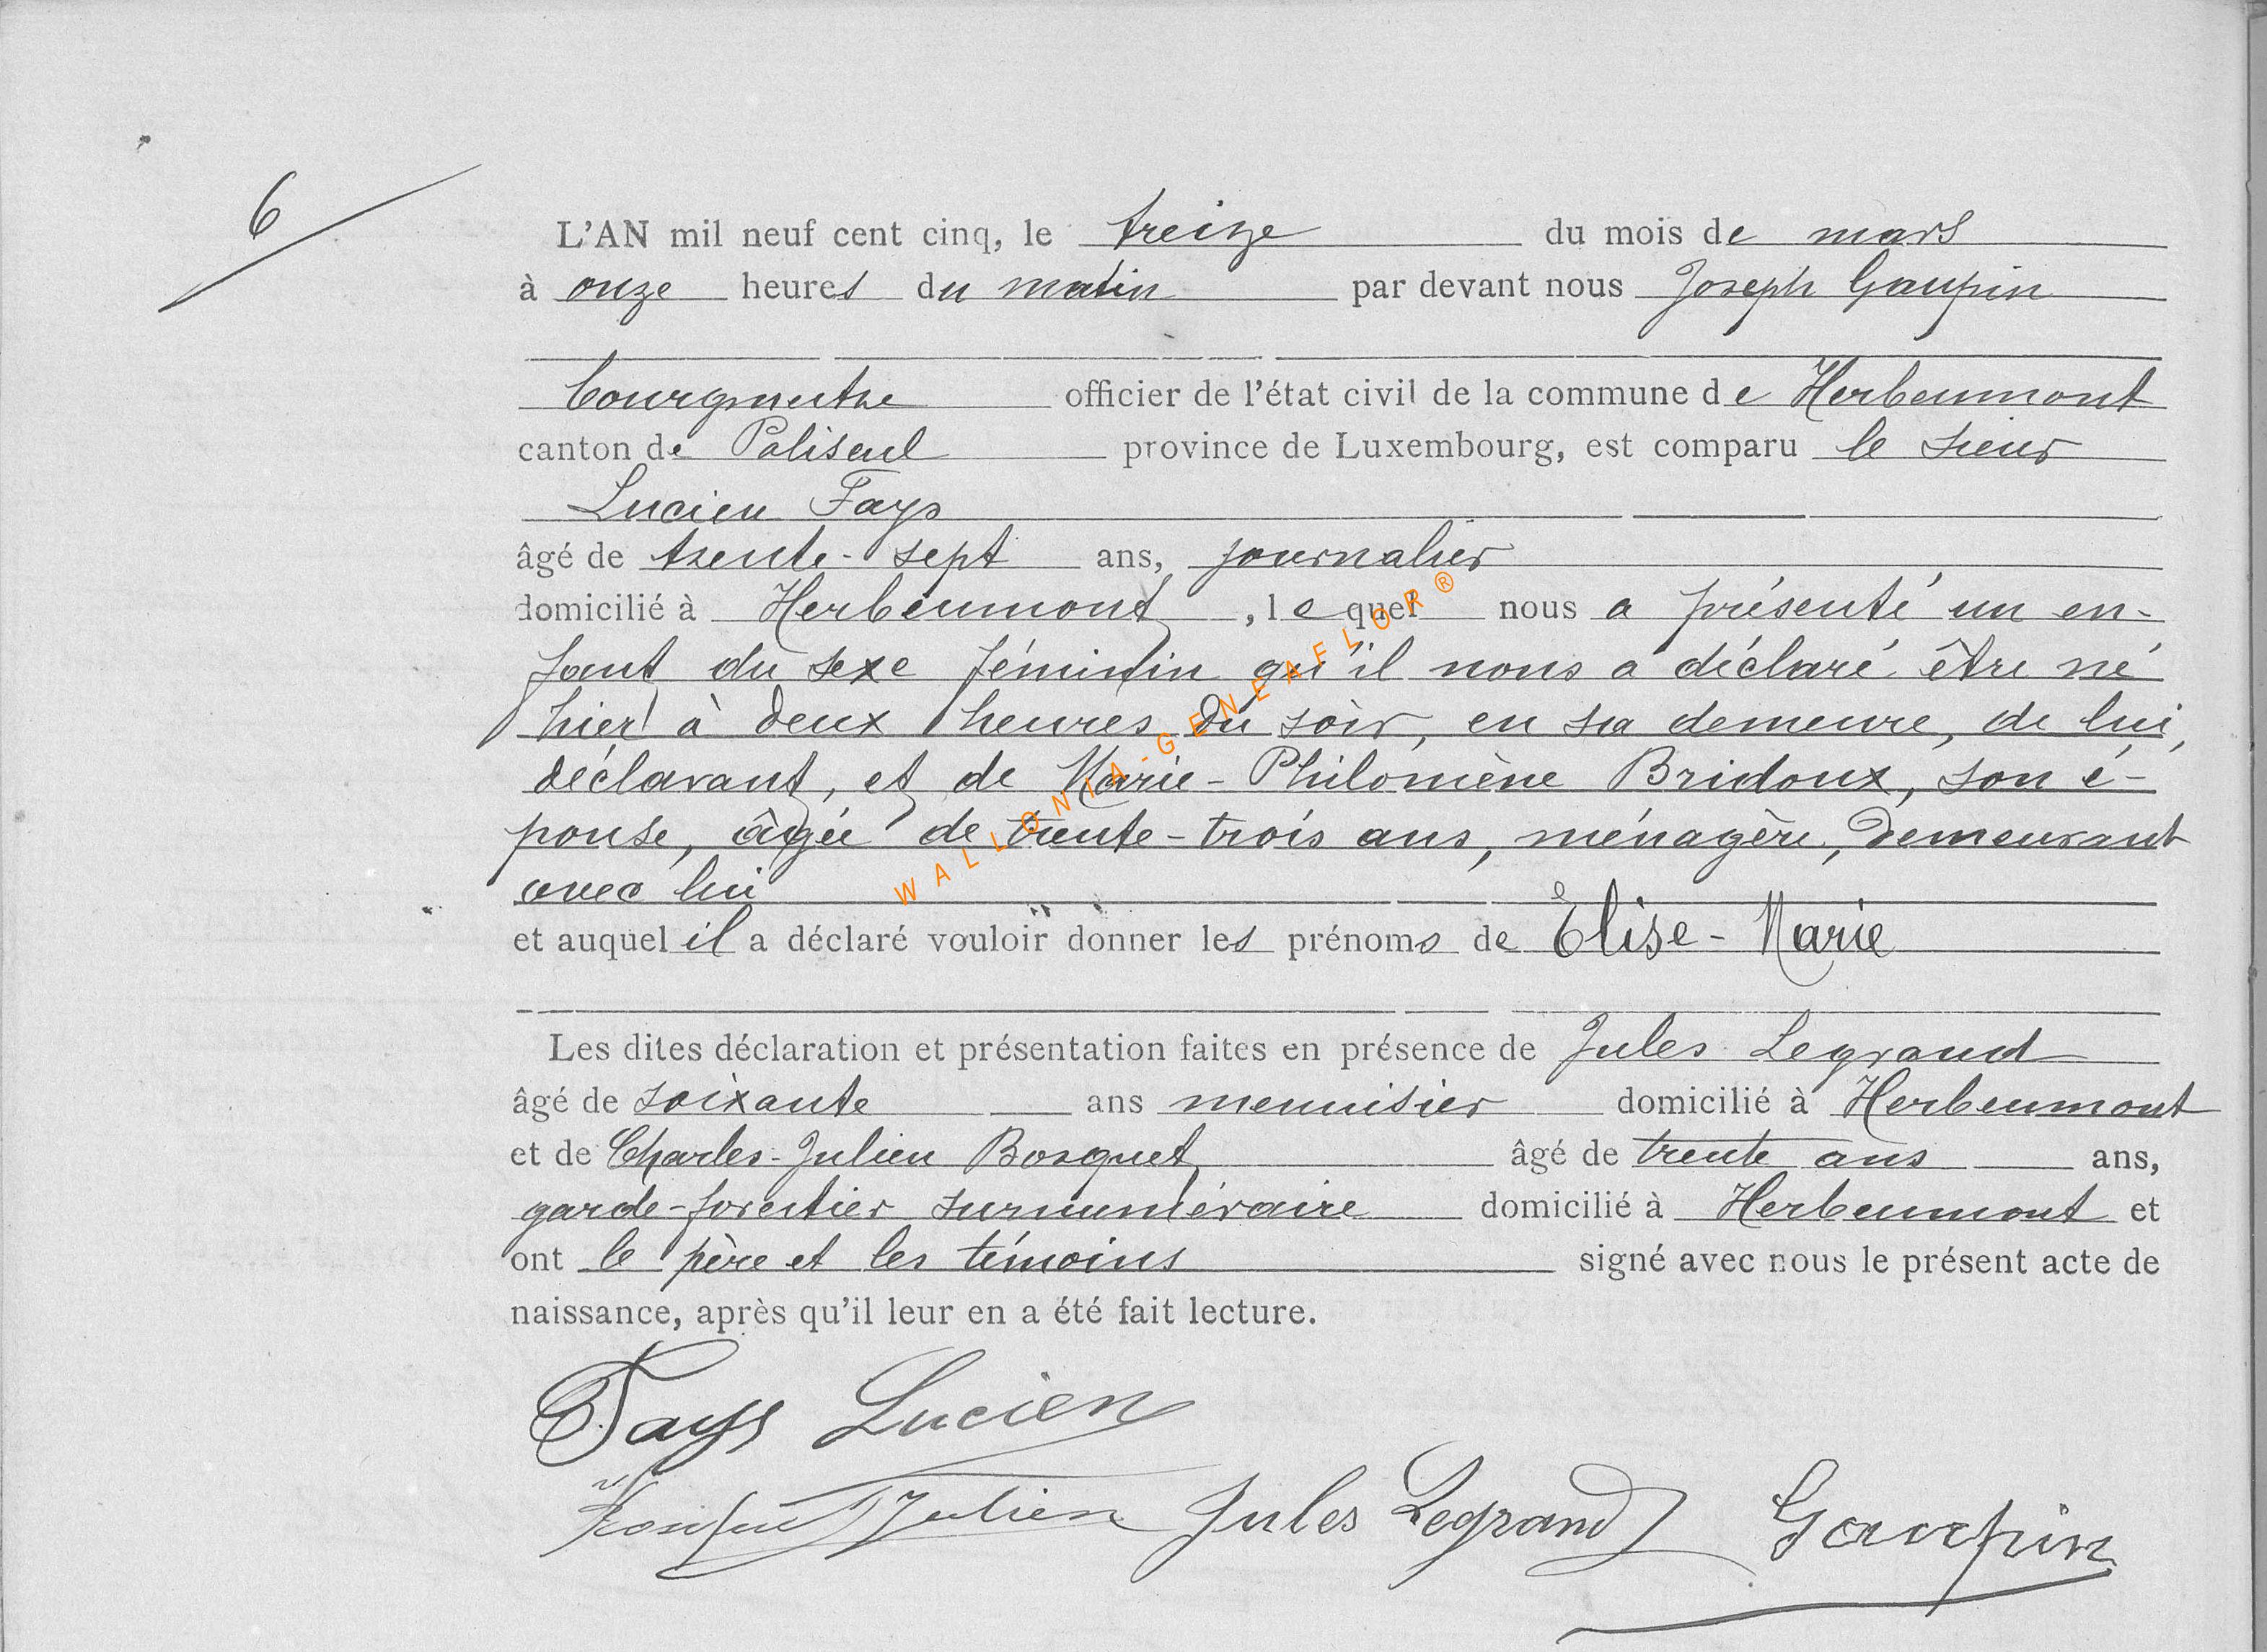 6
L'AN mil neuf cent cinq, le treize du mois de mars
à onze heures du matin par devant nous Joseph Gaupin
bourgmestre officier de l'état civil de la commune de Herbeumont
canton de Paliseul province de Luxembourg, est comparu le sieur
Lucien Fays
âgé de trente-sept ans, journalier
domicilié à Herbeumont, lequel nous a présenté un en-
fant du sexe féminin qu'il nous a déclaré être né
hier à deux heures du soir, en sa demeure, de lui,
déclarant, et de Marie-Philomène Bridoux, son é-
pouse, âgée de trente-trois ans, ménagère, demeurant
avec lui
et auquel il a déclaré vouloir donner les prénoms de Elise-Marie
Les dites déclaration et présentation faites en présence de Jules Legrand
âgé de soixante ans menuisier domicilié à Herbeumont
et de Charles-Julien Bosquet âgé de trente ans ans,
garde-forestier surnuméraire domicilié à Herbeumont et
ont le père et les témoins signé avec nous le présent acte de
naissance, après qu'il leur en a été fait lecture.
Fays Lucien
Julien Jules Legrand Gaupin
WALLONIA-GENEAFLOR®